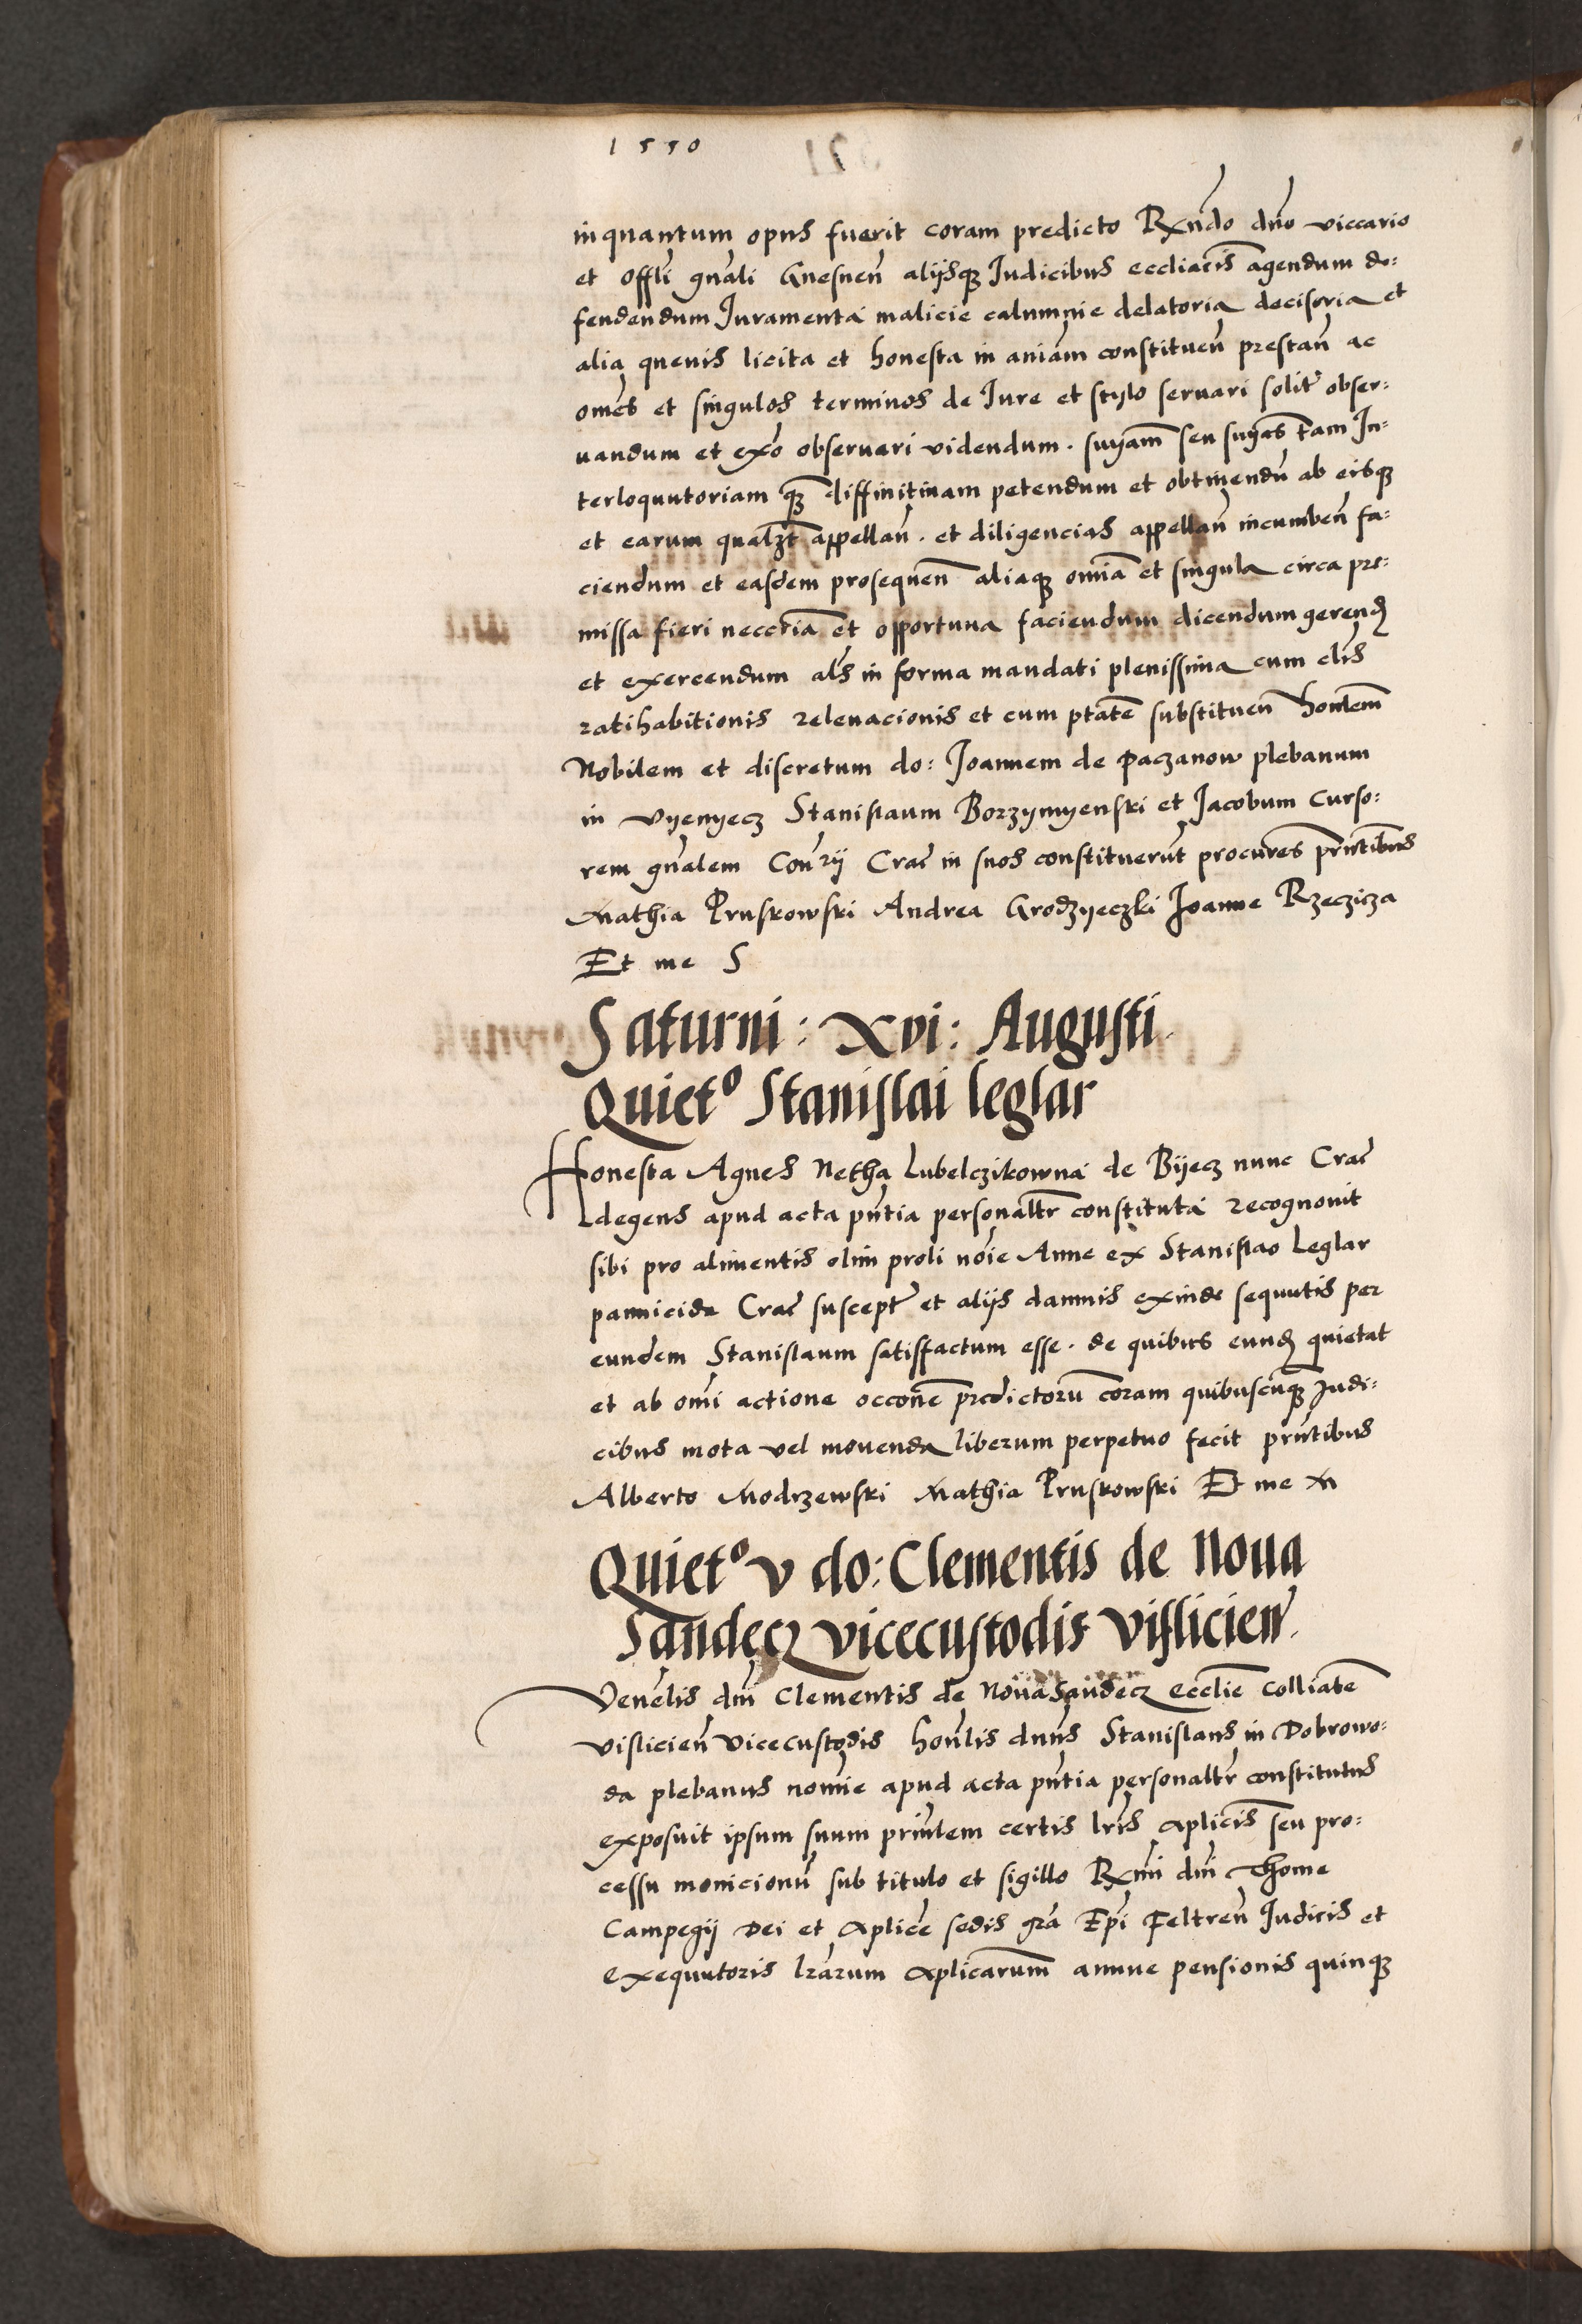 1550
inquantum opus fuerit coram predicto Rxndo dno viccario
et Offli gnali Gnesnen alijsq3 Iudicibus eccliacis agendum de=
fendendum Iuramenta malicie calumnie delatoria decisoria et
alia quevis licita et honesta in aniam constituen prestan ac
omes et singulos terminos de Iure et stylo servari solit obser=
vandum et exo observari videndum. snyam seu snyas tam In=
terloquutoriam q3 diffinitivam petendum et obtinendu ab eisq3
et earum qualzt appellan. et diligencias appellan incumben fa=
ciendum et easdem prosequen aliaq3 omia et singula circa pre=
missa fieri neccria et opportuna faciendum dicendum gerend
et exercendum als in forma mandati plenissima cum clis
ratihabitionis relevacionis et cum ptate substituen honlem
Nobilem et discretum do: Joannem de Paczanow plebanum
in Vyenyecz Stanislaum Borzymyenski et Jacobum Curso=
rem gnalem Conrij Crac in suos constituerut procures pntibus
Mathia Pruskowski Andrea Grodzyeczki Joanne Rzeczicza
Et me S
Saturni: Xvi: Augusti
Quieto Stanislai leglar
Honesta Agnes Netha Lubelczikowna de Byecz nunc Crac
degens apud acta pntia personaltr constituta recognovit
sibi pro alimentis olim proli noie Anne ex Stanislao Leglar
pannicida Crac suscept et alijs damnis exinde sequutis per
eundem Stanislaum satisffactum esse. de quibus eund quietat
et ab omi actione occone predictoru coram quibuscuq3 Judi=
cibus mota vel movenda liberum perpetuo fecit pntibus
Alberto Modrzewski Mathia Pruskowski Et me M
Quieto v do: Clementis de Nova
Sandecz vicecustodis vislicien
Venelis dni Clementis de Nova Sandecz ecclie Colliate
vislicien Vicecustodis honlis dnus Stanislaus in Dobrowo=
da plebanus nomie apud acta pntia personaltr constitutus
exposuit ipsum suum prinlem certis lris aplicis seu pro=
cessu monicionu sub titulo et sigillo Rxmi dni Thome
Campegij Dei et aplice sedis gra Epi Feltren Judicis et
exequutoris lrarum aplicarum annue pensionis quinq3